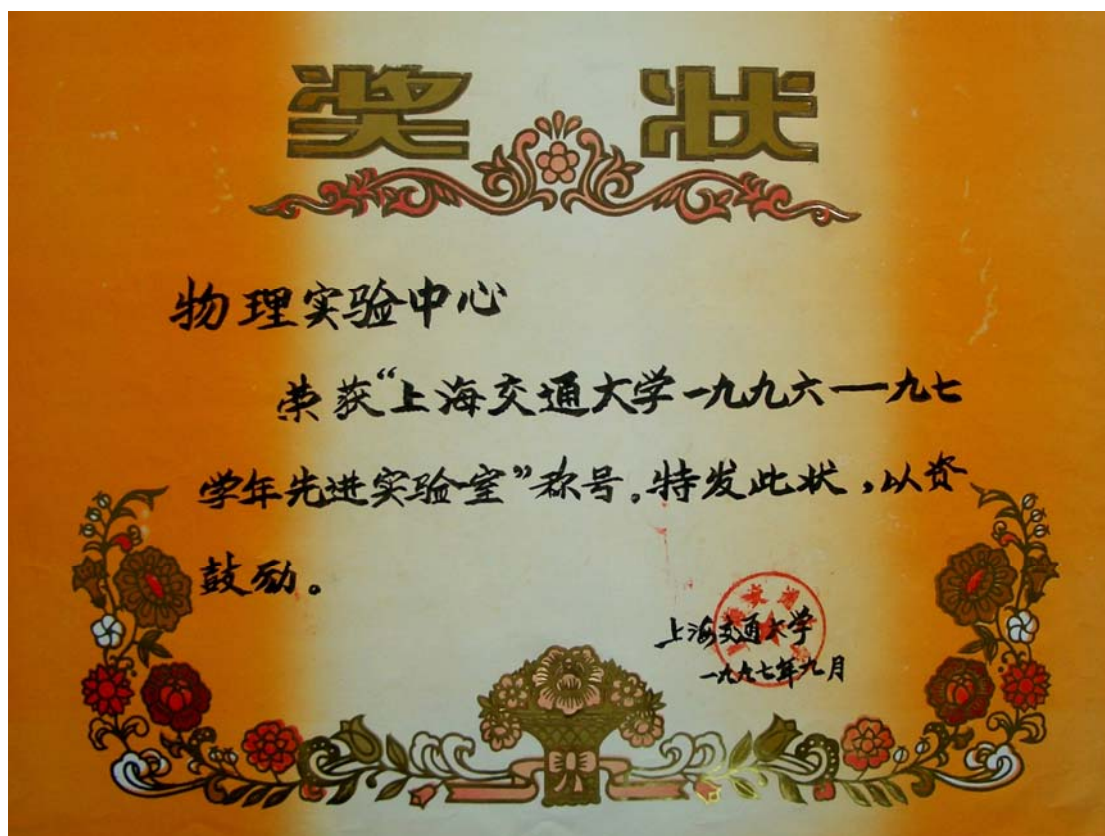 奖状
物理实验中心
荣获“上海交通大学一九九六—九七
学年先进实验室”称号。特发此状，以资
鼓励。
上海交通大学
一九九七年九月